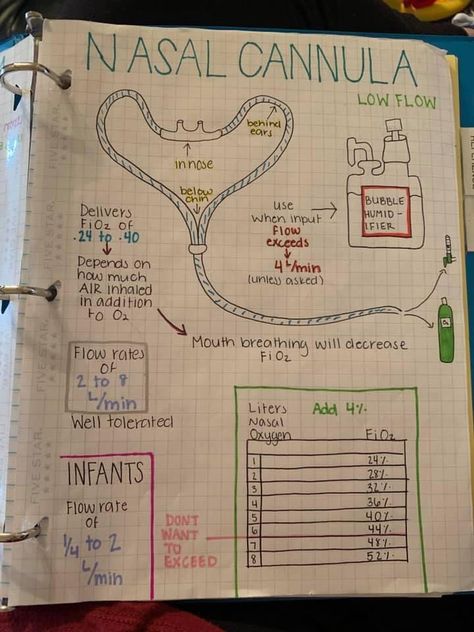 NASAL CANNULA
LOW FLOW
behind
ears
in nose
below
chin
use
when input
flow
exceeds
4 L/min
(unless asked)
BUBBLE
HUMID-
IFIER
Delivers
FiO2 of
.24 to .40
Depends on
how much
AIR inhaled
in addition
to O2
Mouth breathing will decrease
FiO2
Flow rates
of
2 to 8
L/min
Well tolerated
INFANTS
Flow rate
of
1/4 to 2
L/min
DONT
WANT
TO
EXCEED
Liters Add 4%
Nasal
Oxygen FiO2
1 24%
2 28%
3 32%
4 36%
5 40%
6 44%
7 48%
8 52%
FIVE STAR
FIVE STAR
FIVE STAR.
FIVE STAR